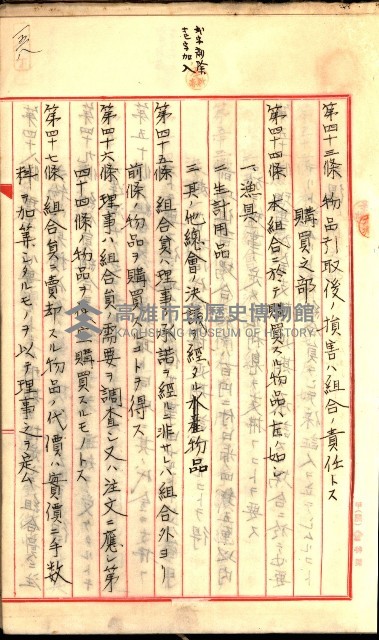 第四十三條 物品引取後ノ損害ハ組合ノ責任トス
購買之部
第四十四條 本組合ニ於テ購買スル物品ハ左ノ如シ
一、漁具
二、生計用品
三、其ノ他總會ノ決議ヲ經タル水產物品
第四十五條 組合員ハ理事ノ承諾ヲ經ルニ非サレハ組合外ヨリ
前條ノ物品ヲ購買スルコトヲ得ス
第四十六條 理事ハ組合員ノ需要ヲ調查シ又ハ注文ニ應シ第
四十四條ノ物品ヲ購買スルモノトス
第四十七條 組合員ニ賣却スル物品ノ代價ハ實價ニ手數
料ヲ加算シタルモノヲ以テ理事之ヲ定ム
高雄市立歷史博物館
KAOHSIUNG MUSEUM OF HISTORY